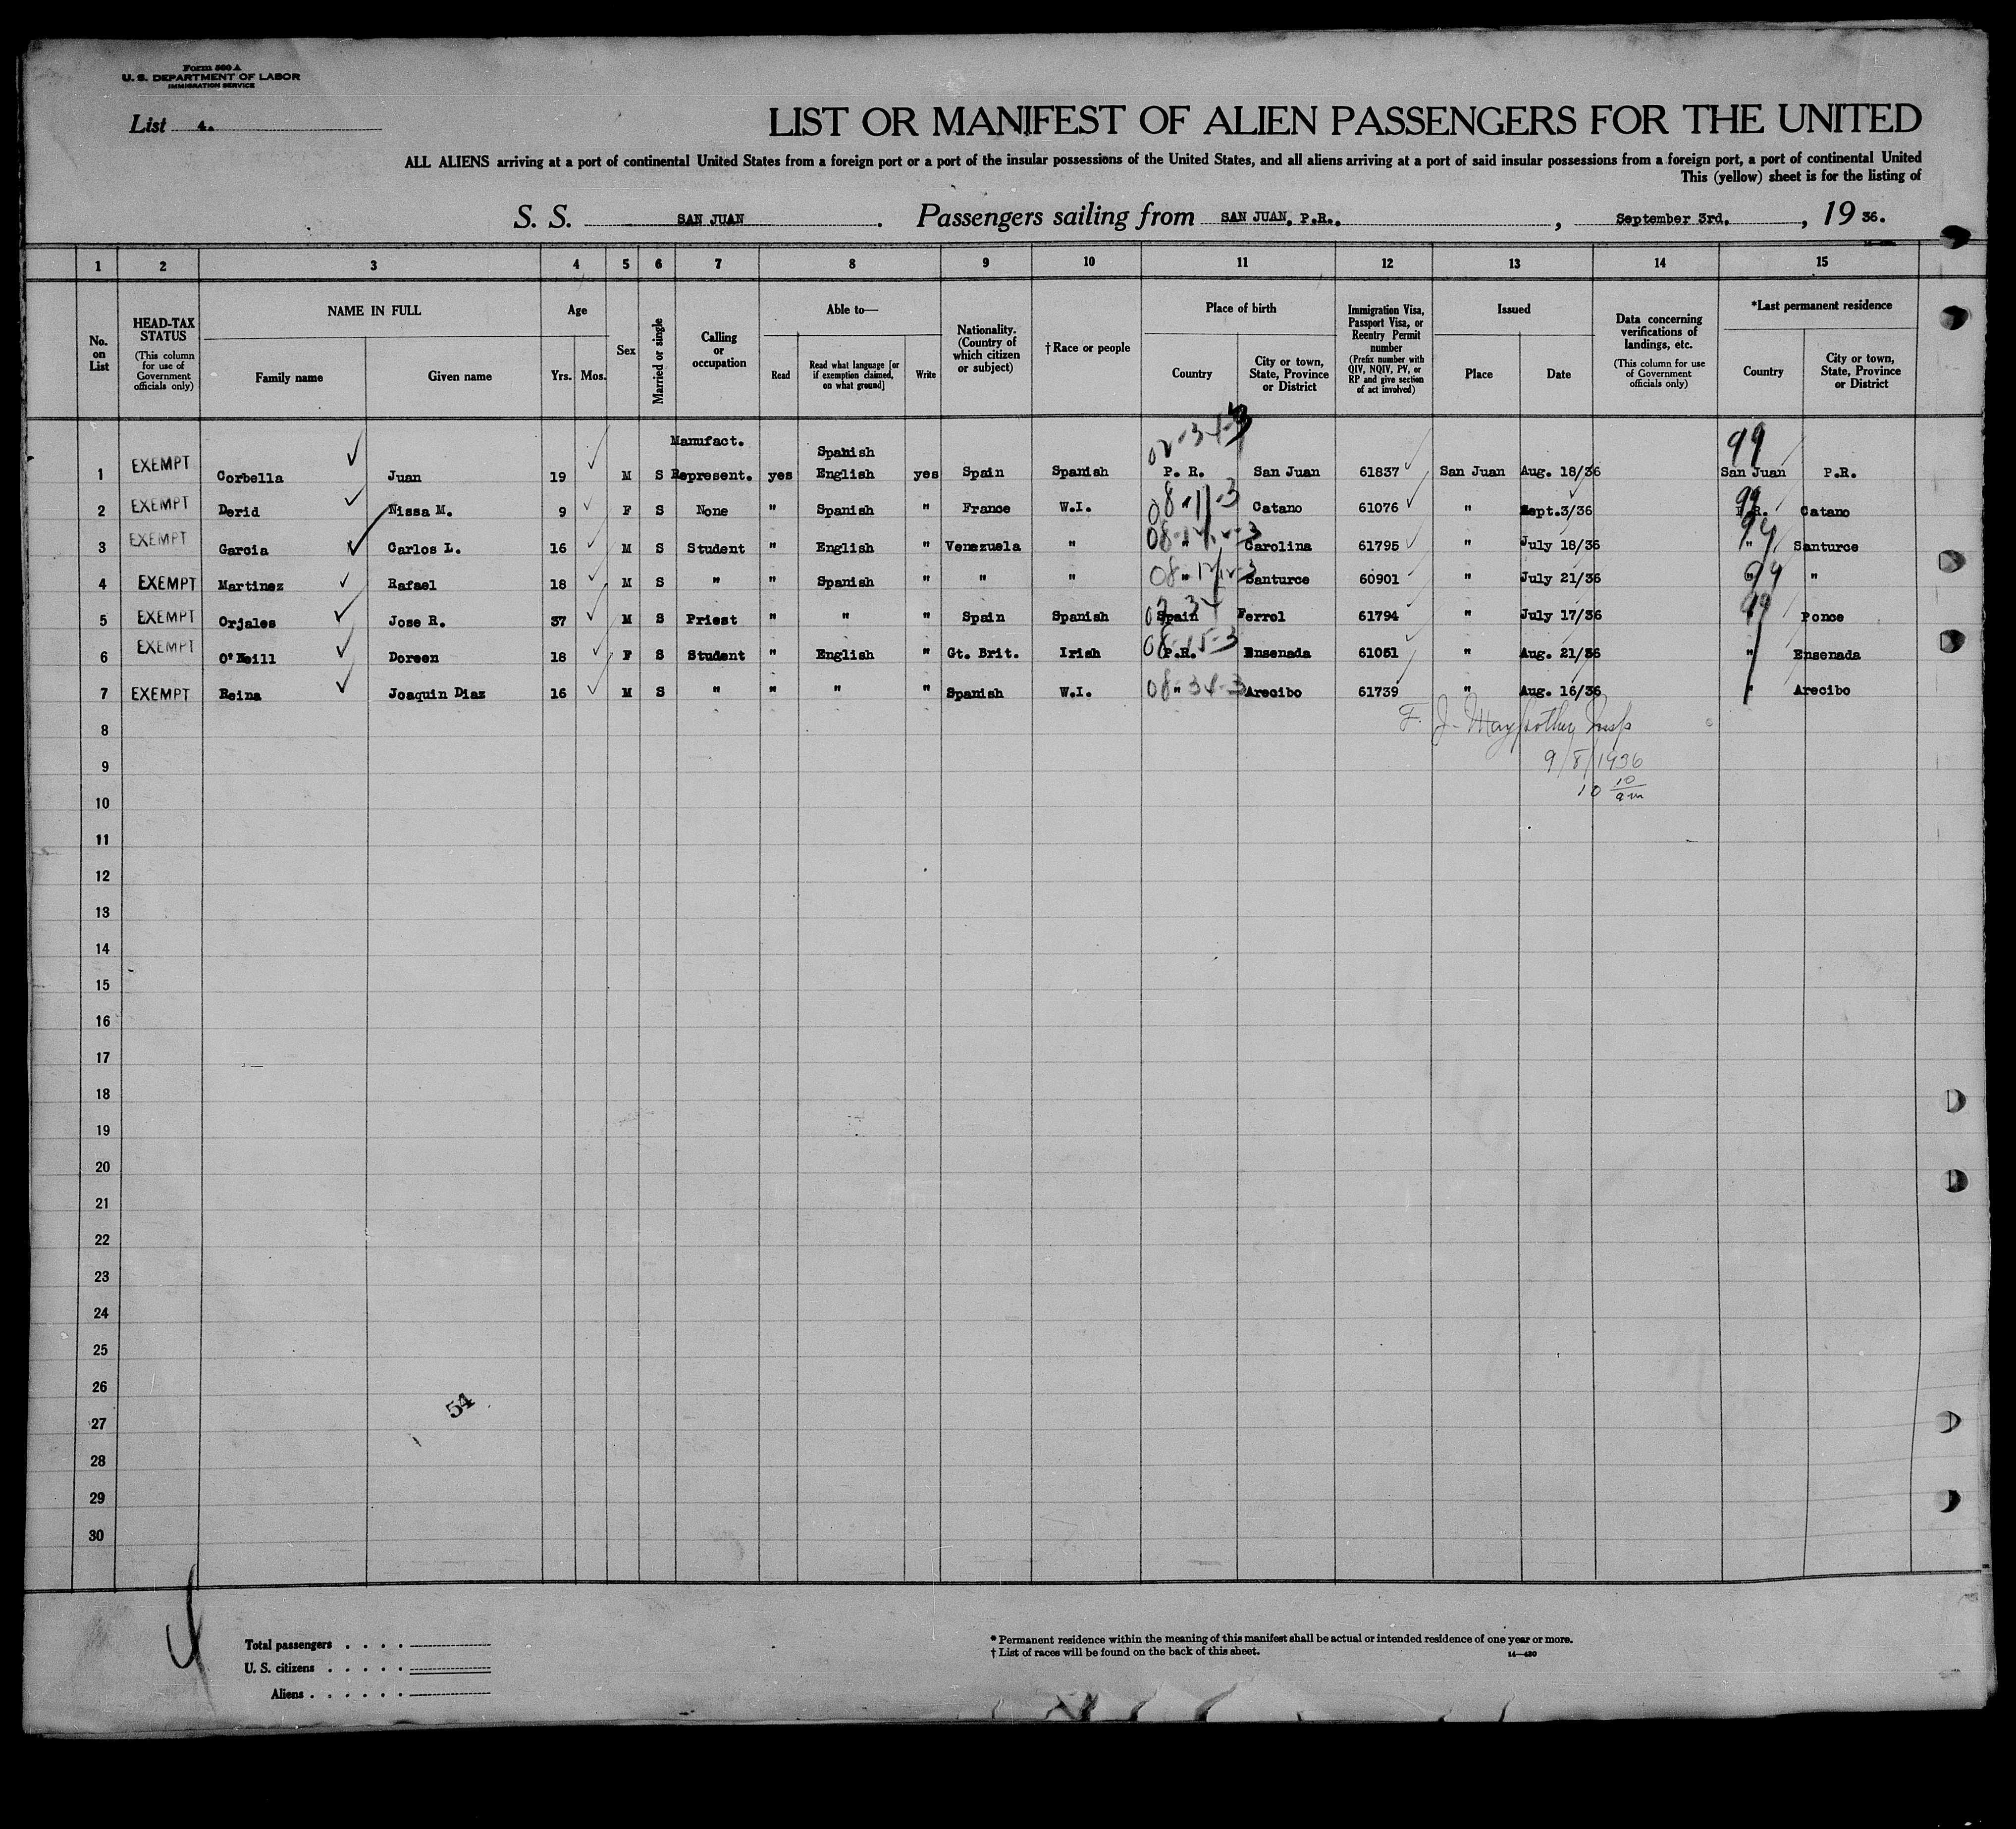 Form 500 A
U. S. DEPARTMENT OF LABOR
IMMIGRATION SERVICE
List 4.
LIST OR MANIFEST OF ALIEN PASSENGERS FOR THE UNITED
ALL ALIENS arriving at a port of continental United States from a foreign port or a port of the insular possessions of the United States, and all aliens arriving at a port of said insular possessions from a foreign port, a port of continental United
This (yellow) sheet is for the listing of
S. S. SAN JUAN. Passengers sailing from SAN JUAN, P.R., , September 3rd. , 19 36.
1 2 3 4 5 6 7 8 9 10 11 12 13 14 15
No. on List
HEAD-TAX STATUS (This column for use of Government officials only)
NAME IN FULL
Family name Given name
Age
Yrs. Mos.
Sex
Married or single
Calling or occupation
Able to—
Read Read what language [or if exemption claimed, on what ground] Write
Nationality. (Country of which citizen or subject)
†Race or people
Place of birth
Country City or town, State, Province or District
Immigration Visa, Passport Visa, or Reentry Permit number (Prefix number with QIV, NQIV, PV, or RP and give section of act involved)
Issued
Place Date
Data concerning verifications of landings, etc. (This column for use of Government officials only)
*Last permanent residence
Country City or town, State, Province or District
1 EXEMPT Corbella Juan 19 M S Manufact. Represent. yes Spanish English yes Spain Spanish P. R. San Juan 61837 San Juan Aug. 18/36 99 San Juan P.R.
2 EXEMPT Derid Nissa M. 9 F S None " Spanish " France W.I. " 08-11-3 Catano 61076 " Sept.3/36 99 P.R. Catano
3 EXEMPT Garcia Carlos L. 16 M S Student " English " Venezuela " " Carolina 61795 " July 18/36 99 " Santurce
4 EXEMPT Martinez Rafael 18 M S " " Spanish " " " " Santurce 60901 " July 21/36 99 " "
5 EXEMPT Orjales Jose R. 37 M S Priest " " " Spain Spanish Spain Ferrol 61794 " July 17/36 99 " Ponce
6 EXEMPT O'Neill Doreen 18 F S Student " English " Gt. Brit. Irish 08-15-3 P.R. Ensenada 61051 " Aug. 21/36 " Ensenada
7 EXEMPT Reina Joaquin Diaz 16 M S " " " " Spanish W.I. 08-34-3 " Arecibo 61739 " Aug. 16/36 " Arecibo
8
9 9/8/1936
10 10 10/am
11
12
13
14
15
16
17
18
19
20
21
22
23
24
25
26
27 54
28
29
30
Total passengers . . . .
U. S. citizens . . . . .
Aliens . . . . . .
* Permanent residence within the meaning of this manifest shall be actual or intended residence of one year or more.
† List of races will be found on the back of this sheet.
14—430